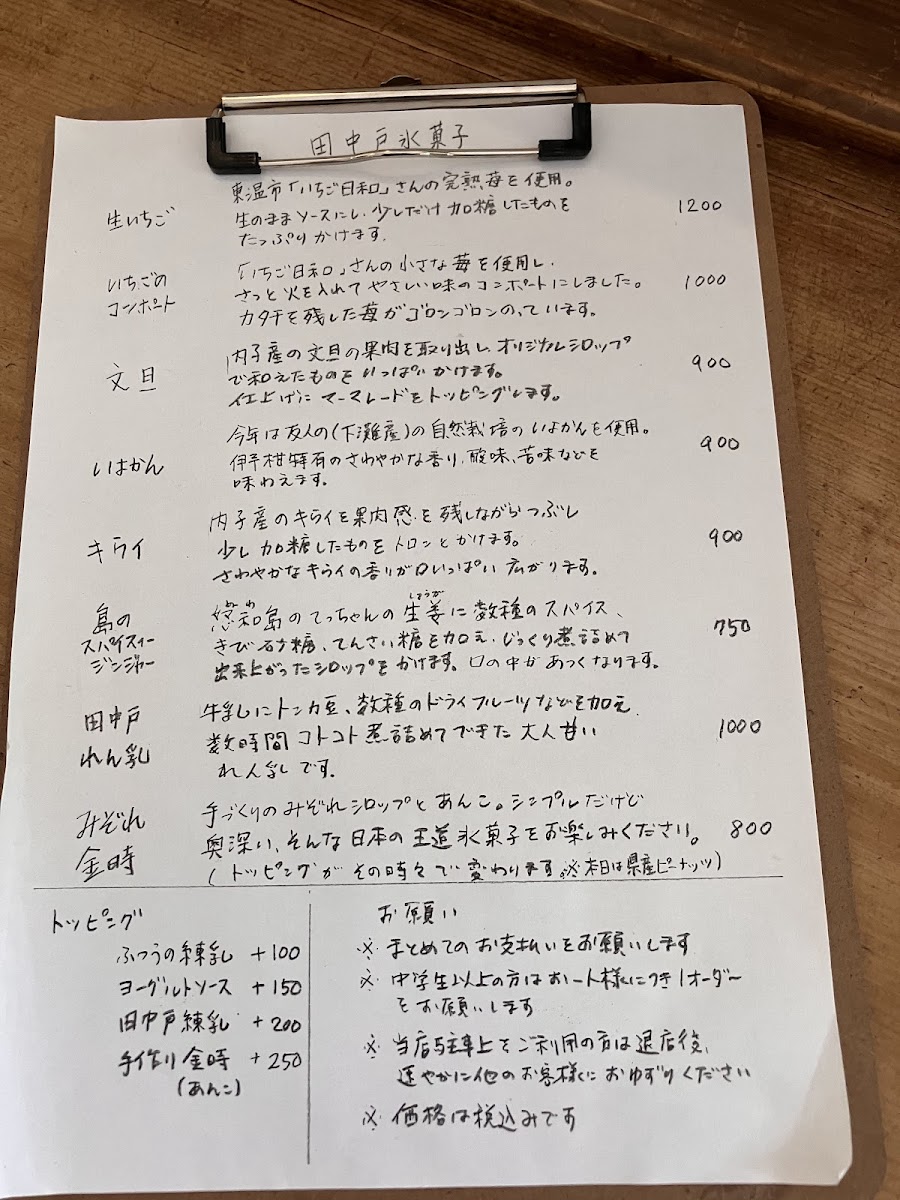 田中戸氷菓子
生いちご
東温市「いちご日和」さんの完熟苺を使用。
生のままソースにし、少しだけ加糖したものを
たっぷりかけます。
1200
いちごの
コンポート
「いちご日和」さんの小さな苺を使用し、
さっと火を入れてやさしい味のコンポートにしました。
カタチを残した苺がゴロンゴロンのっています。
1000
文旦
内子産の文旦の果肉を取り出し、オリジナルシロップ
で和えたものをいっぱいかけます。
仕上げにマーマレードをトッピングします。
900
いよかん
今年は友人の(下灘産)の自然栽培のいよかんを使用。
伊予柑特有のさわやかな香り、酸味、苦味などを
味わえます。
900
キウイ
内子産のキウイを果肉感を残しながらつぶし
少し加糖したものをトロンとかけます。
さわやかなキウイの香りが口いっぱい広がります。
900
島の
スパイスィー
ジンジャー
怒和島のてっちゃんの生姜に数種のスパイス、
ぬわ
しょうが
きび砂糖、てんさい糖を加え、じっくり煮詰めて
出来上がったシロップをかけます。口の中があつくなります。
750
田中戸
れん乳
牛乳にトンカ豆、数種のドライフルーツなどを加え
数時間コトコト煮詰めてできた大人甘い
れん乳です。
1000
みぞれ
金時
手づくりのみぞれシロップとあんこ。シンプルだけど
奥深い、そんな日本の王道氷菓子をお楽しみください。
(トッピングがその時々で変わります。※本日は県産ピーナッツ)
800
トッピング
ふつうの練乳 +100
ヨーグルトソース +150
田中戸練乳 +200
手作り金時 +250
(あんこ)
お願い
※ まとめてのお支払いをお願いします
※ 中学生以上の方はお一人様につき1オーダー
をお願いします
※ 当店駐車上をご利用の方は退店後、
速やかに他のお客様におゆずりください
※ 価格は税込みです